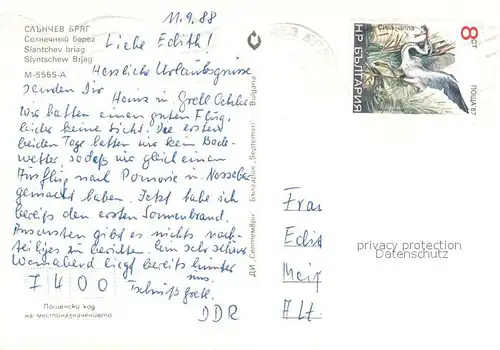 11.9.88
СЛЪНЧЕВ БРЯГ
Солнечный берег
Slantchev briag
Slyntschew Brjag
М-5555-А
Liebe Edith!
Herzliche Urlaubsgrüsse
senden Dir Heinz u. Gretl
wir hatten einen guten Flug,
leider keine Sicht. Die ersten
beiden Tage hatten wir kein Bade-
wetter, sodaß wir gleich einen
Ausflug nach Pomorie u. Nessebar
gemacht haben. Jetzt habe ich
bereits den ersten Sonnenbrand.
Ansonsten gibt es nichts nach-
teiliges zu berichten. Ein sehr schöner
abend liegt bereits hinter
uns.
Tschüß Gretl.
7400
DDR
Пощенски код
на местоназначението
ДИ „Септември" България „Septemvri" Bulgaria
НР БЪЛГАРИЯ
Сива чапла
8 СТ
ПОЩА 87
Frau
Edit
Alt
privacy protection
Datenschutz